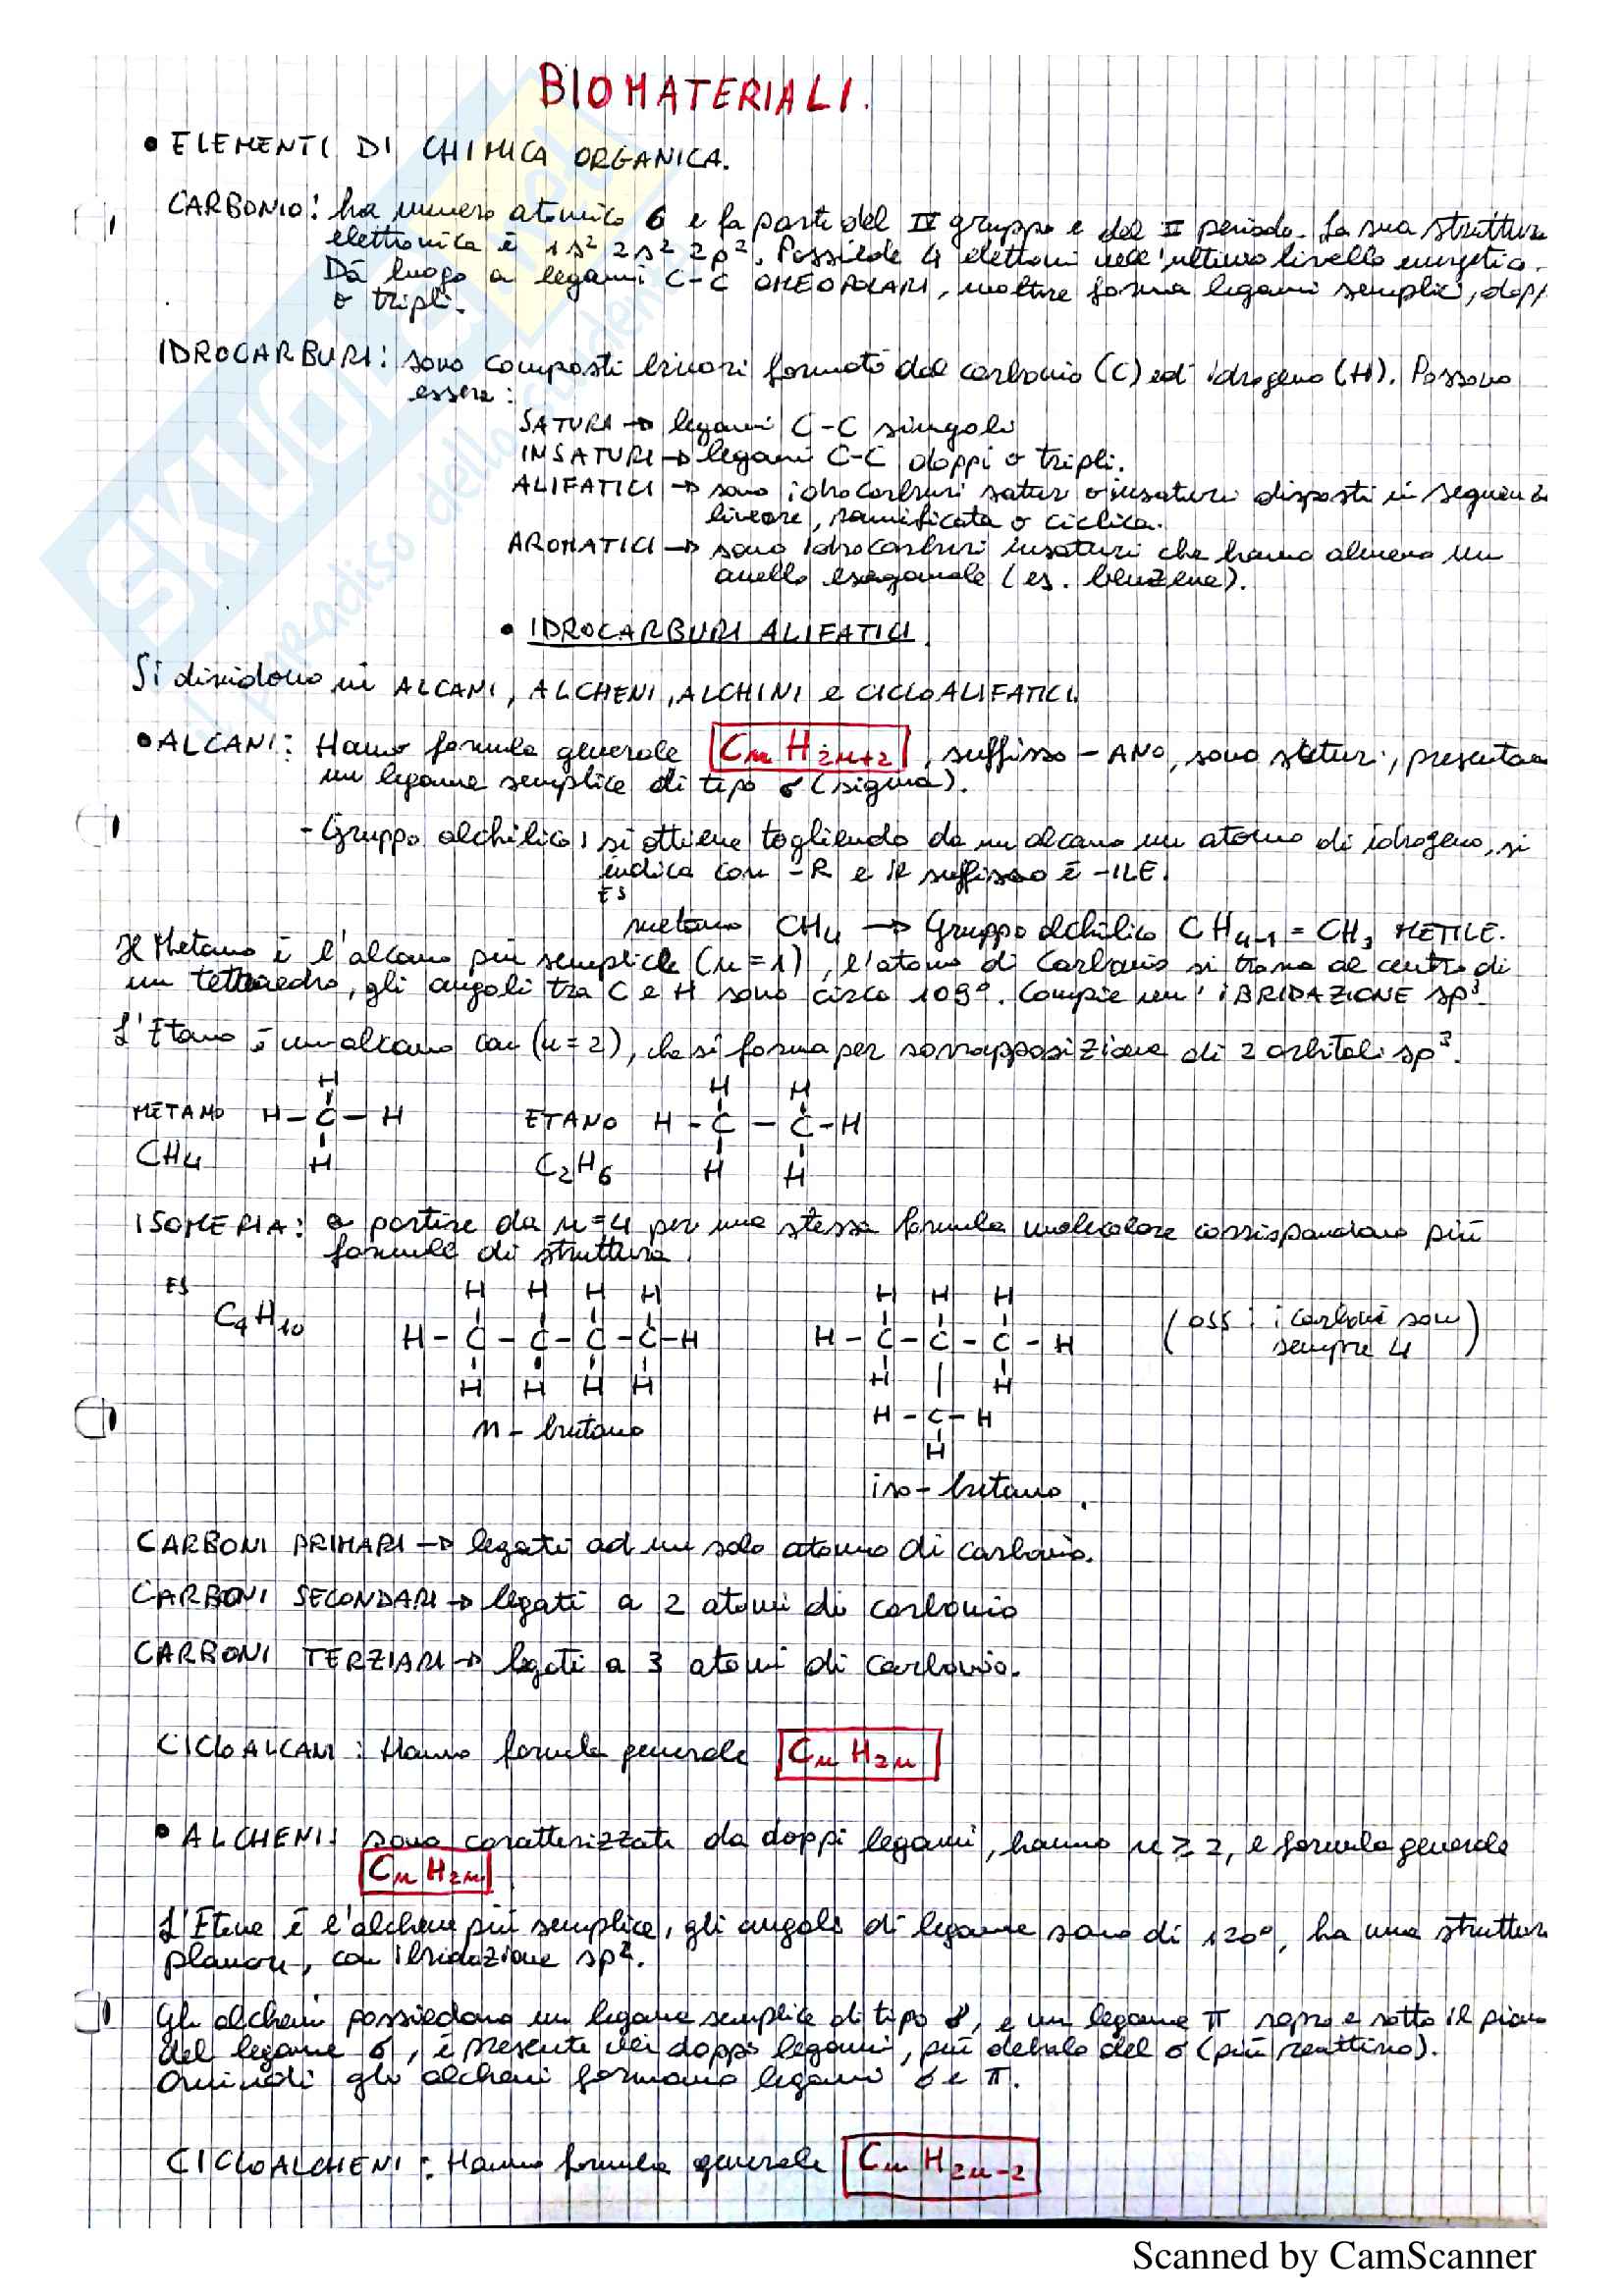 BIOMATERIALI.
• ELEMENTI DI CHIMICA ORGANICA.
CARBONIO: ha numero atomico 6 e fa parte del IV gruppo e del II periodo. La sua struttura
elettronica è 1s² 2s² 2p². Possiede 4 elettroni nell'ultimo livello energetico.
Dà luogo a legami C-C OMEOPOLARI, inoltre forma legami semplici, dopp
o tripli.
IDROCARBURI: sono composti binari formati dal carbonio (C) ed idrogeno (H). Possono
essere:
SATURI → legami C-C singoli
INSATURI → legami C-C doppi o tripli.
ALIFATICI → sono idrocarburi saturi o insaturi disposti in sequenza
lineare, ramificata o ciclica.
AROMATICI → sono idrocarburi insaturi che hanno almeno un
anello esagonale (es. benzene).
• IDROCARBURI ALIFATICI.
Si dividono in ALCANI, ALCHENI, ALCHINI e CICLOALIFATICI.
• ALCANI: Hanno formula generale CnH2n+2, suffisso -ANO, sono saturi, presentano
un legame semplice di tipo σ (sigma).
- Gruppo alchilico: si ottiene togliendo da un alcano un atomo di idrogeno, si
indica con -R e il suffisso è -ILE.
ES
metano CH4 → Gruppo alchilico CH4-1 = CH3 METILE.
Il Metano è l'alcano più semplice (n=1), l'atomo di carbonio si trova al centro di
un tetraedro, gli angoli tra C e H sono circa 109°. Compie un'IBRIDAZIONE sp³.
L'Etano è un alcano con (n=2), che si forma per sovrapposizione di 2 orbitali sp³.
H H H
METANO H-C-H ETANO H-C-C-H
CH4 H C2H6 H H
ISOMERIA: a partire da n=4 per una stessa formula molecolare corrispondono più
formule di struttura.
ES H H H H H H H
C4H10 H-C-C-C-C-H H-C-C-C-H (oss: i carboni sono
sempre 4)
H H H H H | H
H-C-H
n-butano
H
iso-butano.
CARBONI PRIMARI → legati ad un solo atomo di carbonio.
CARBONI SECONDARI → legati a 2 atomi di carbonio
CARBONI TERZIARI → legati a 3 atomi di carbonio.
CICLOALCANI: Hanno formula generale CnH2n
• ALCHENI: sono caratterizzati da doppi legami, hanno n ≥ 2, e formula generale
CnH2n
L'Etene è l'alchene più semplice, gli angoli di legame sono di 120°, ha una struttura
planare, con ibridazione sp².
Gli alcheni possiedono un legame semplice di tipo σ, e un legame π sopra e sotto il piano
del legame σ, è presente nei doppi legami, più debole del σ (più reattivo).
Quindi gli alcheni formano legami σ e π.
CICLOALCHENI: Hanno formula generale CnH2n-2
Scanned by CamScanner